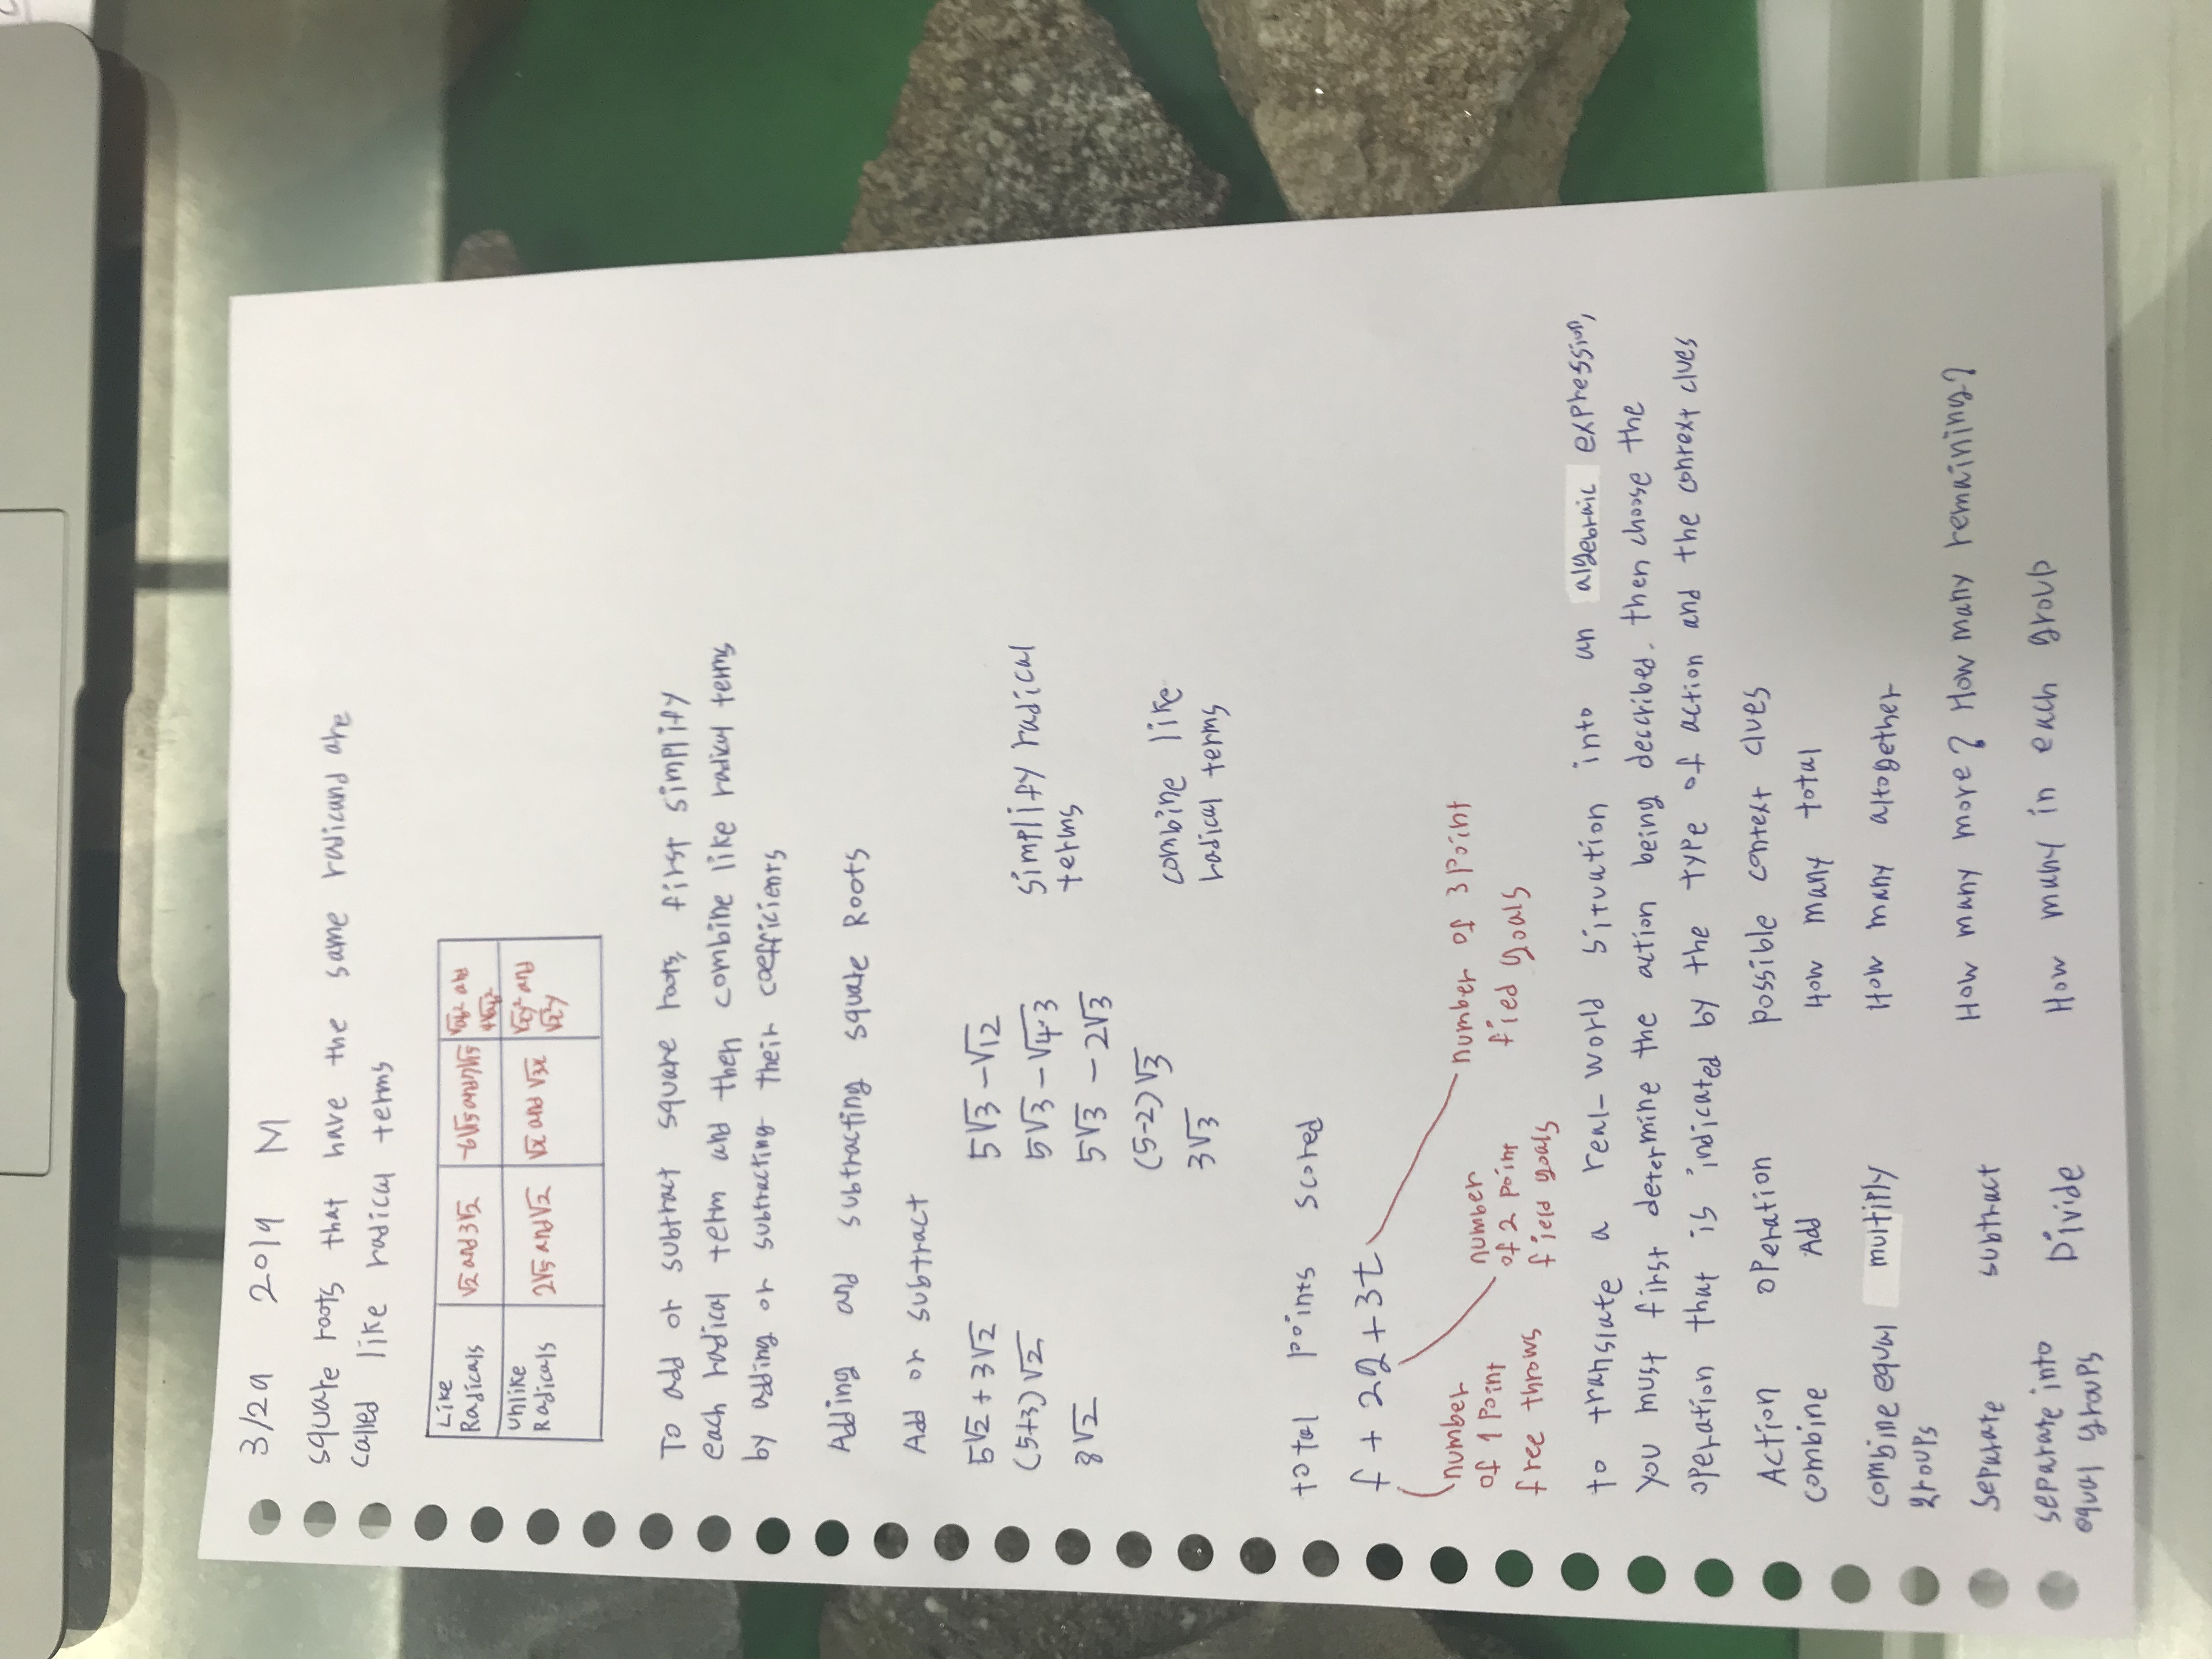 3/29 2019 M
square roots that have the same radicand are
called like radical terms
Like Radicals √2 and 3√2 -6√15 and 7√15
Unlike Radicals 2√5 and √2 √x and √3x √xy² and √x²y
To add or subtract square roots, first simplify
each radical term and then combine like radical terms
by adding or subtracting their coefficients
Adding and subtracting square Roots
Add or subtract
5√2 + 3√2 5√3 - √12
(5+3)√2 5√3 - √4·3 simplify radical
8√2 5√3 - 2√3 terms
(5-2)√3 combine like
3√3 radical terms
total points scored
f + 2g + 3t
(number of 1 point free throws
number of 2 point field goals
number of 3 point fied goals
to translate a real-world situation into an algebraic expression,
you must first determine the action being decribed. then choose the
operation that is indicated by the type of action and the context clues
Action operation possible context clues
combine Add How many total
combine equal groups multiply How many altogether
separate subtract How many more? How many remaining?
separate into equal groups Divide How many in each group